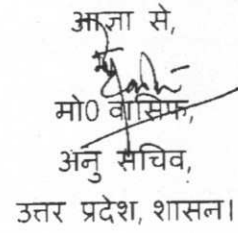 आज्ञा से,
मो0 वासिफ,
अनु सचिव,
उत्तर प्रदेश, शासन।